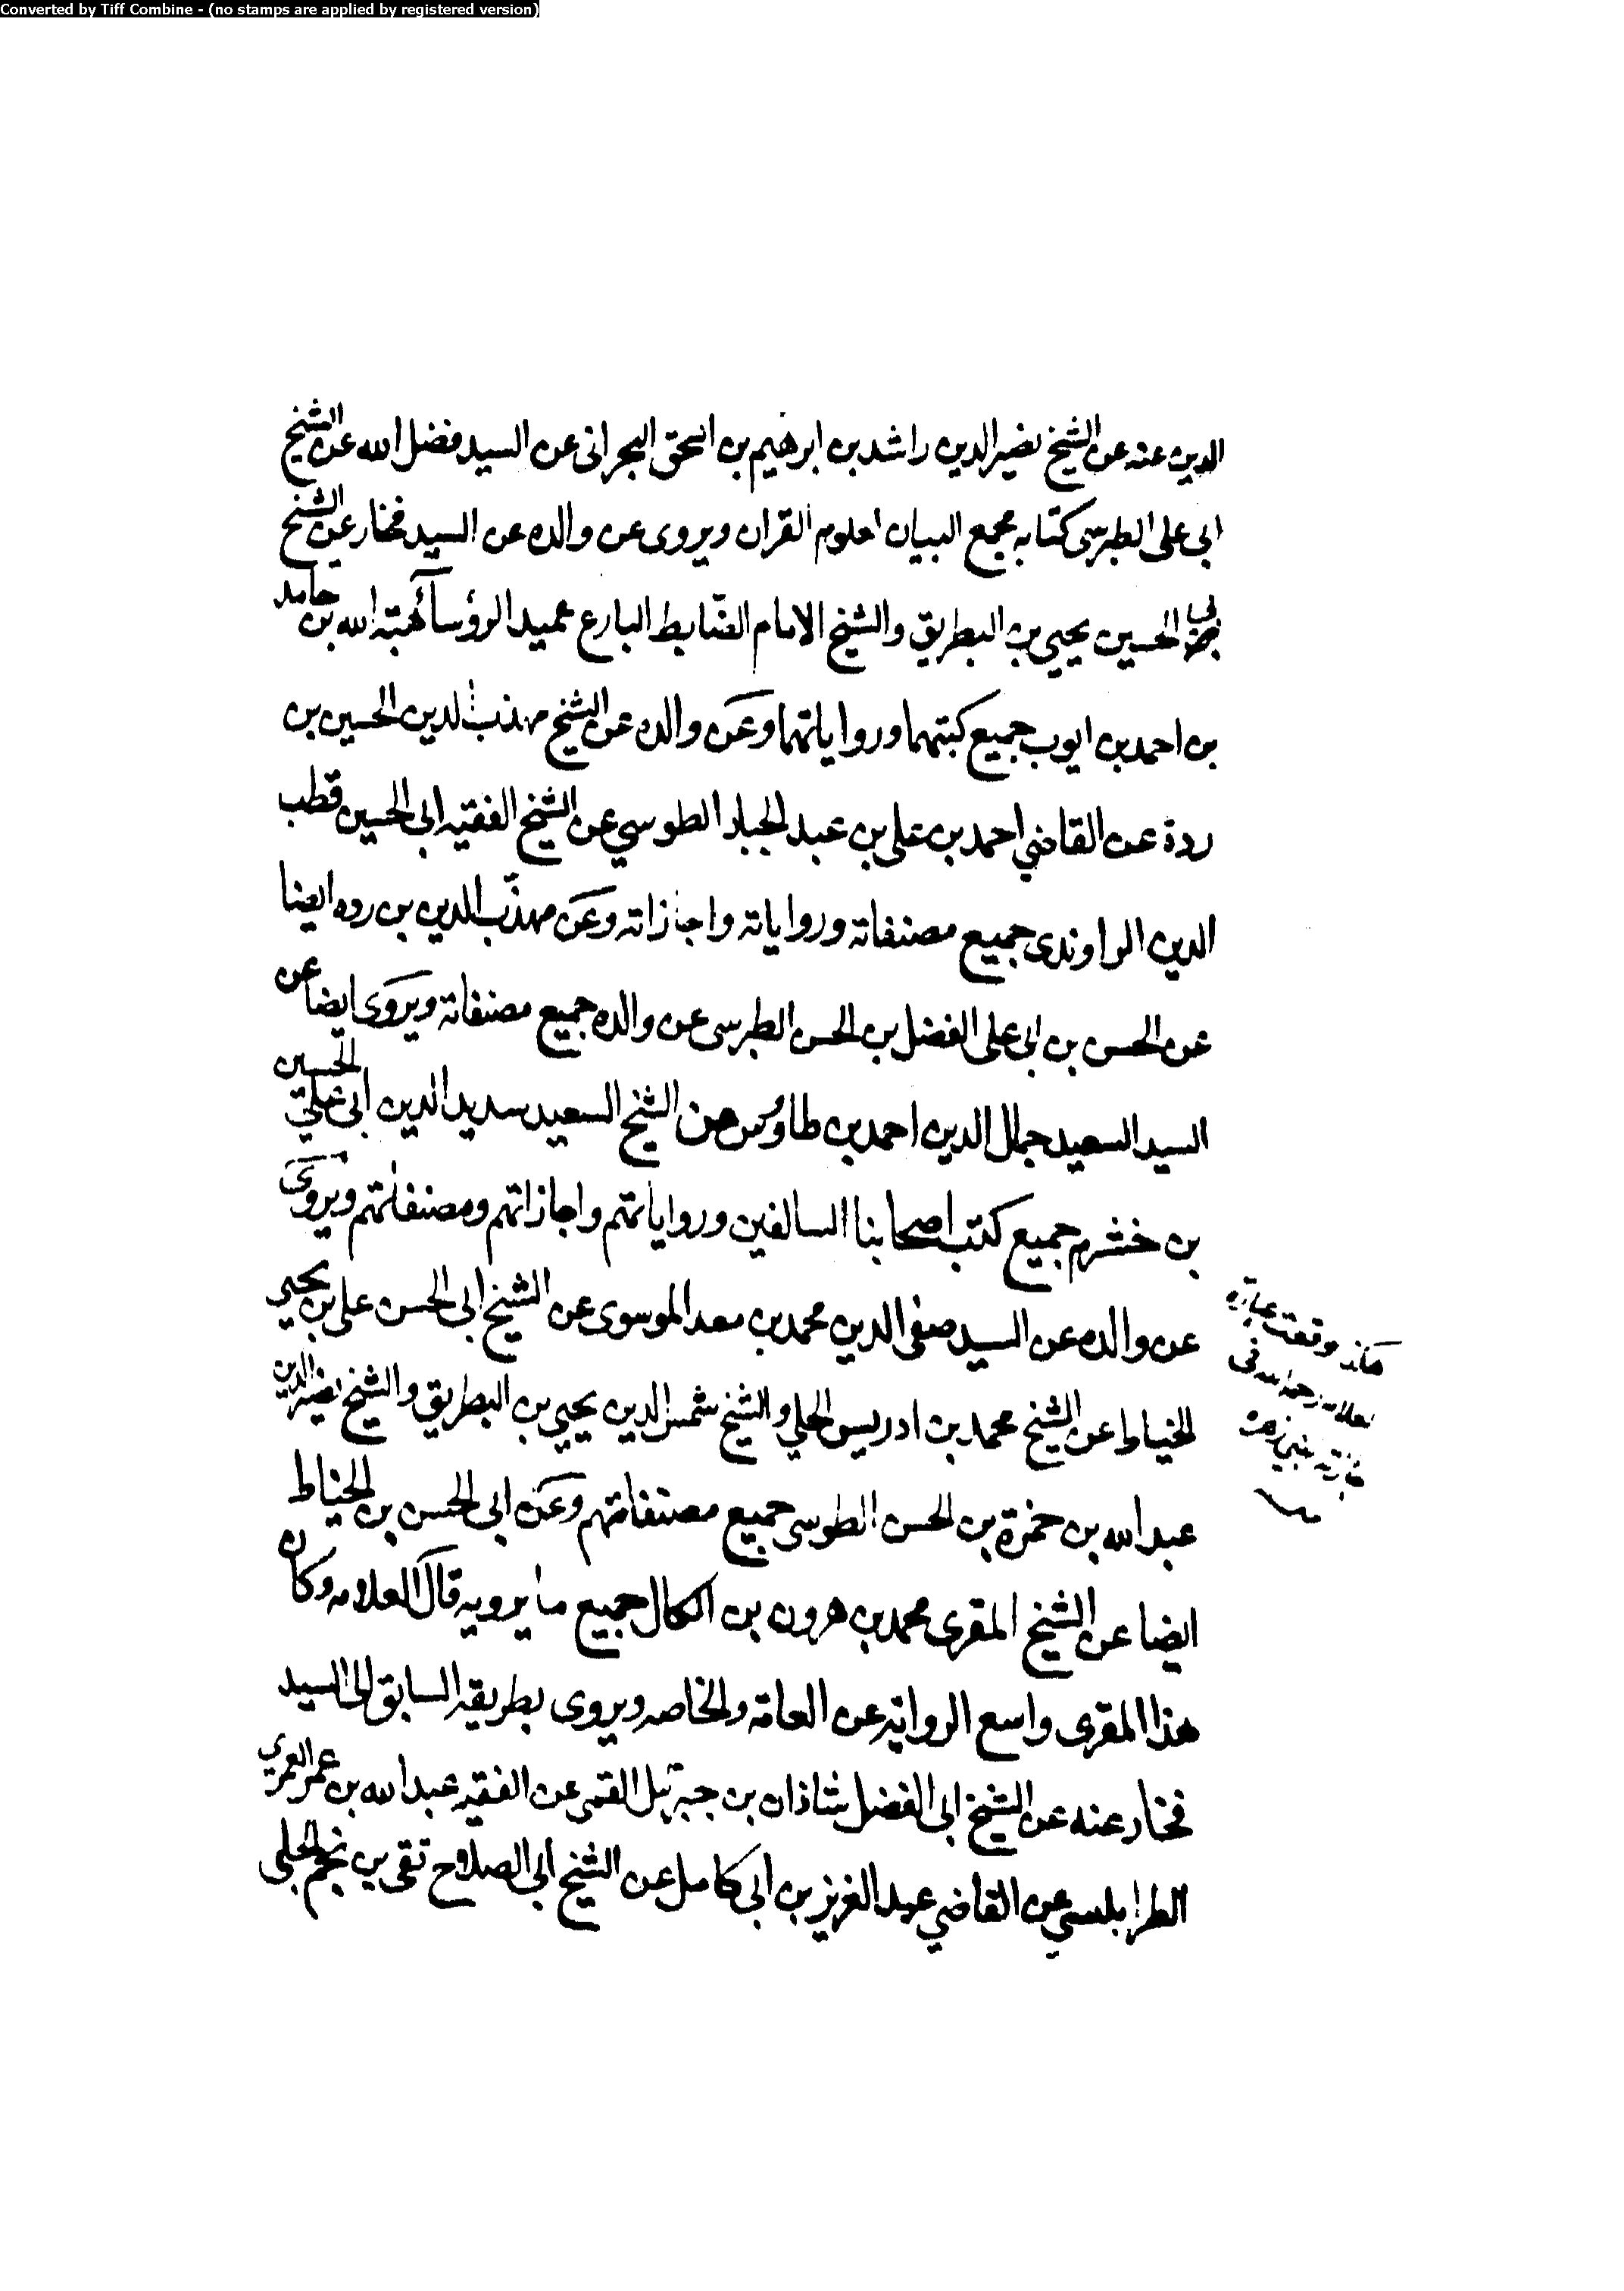 Converted by Tiff Combine - (no stamps are applied by registered version)
الدين عنه عن الشيخ نصير الدين راشد بن ابرهيم بن اسحق البحرانى عن السيد فضل الله عن الشيخ
ابى على الطبرسى كتابه مجمع البيان لعلوم القران ويروى عن والده عن السيد فخار عن الشيخ
الحسين يحيى بن البطريق والشيخ الامام الضابط البارع عميد الرؤسآء هبة الله بن حامد
بن احمد بن ايوب جميع كتبهما ورواياتهما وعن والده عن الشيخ مهذب الدين الحسين بن
ردة عن القاضي احمد بن على بن عبد الجبار الطوسي عن الشيخ الفقيه ابى الحسين قطب
الدين الراوندى جميع مصنفاته ورواياته واجازاته وعن مهذّب الدين بن رده ايضا
عن الحسن بن ابى على الفضل بن الحسن الطبرسى عن والده جميع مصنفاته ويروى ايضا عن
السيد السعيد جمال الدين احمد بن طاوس عن الشيخ السعيد سديد الدين ابى على الحسين
بن خشرم جميع كتب اصحابنا السالفين ورواياتهم واجازاتهم ومصنفاتهم ويروى
عن والده عن السيد صفى الدين محمد بن معد الموسوى عن الشيخ ابى الحسن على بن يحيى
الخياط عن الشيخ محمد بن ادريس الحلي والشيخ شمس الدين يحيى بن البطريق والشيخ نصير الدين
عبد الله بن حمزة بن الحسن الطوسى جميع مصنفاتهم وعن ابى الحسن بن الخياط
ايضا عن الشيخ المقرى محمد بن هرون بن الكال جميع ما يرويه قال العلامه وكان
هذا المقرى واسع الرواية عن العامة والخاصه ويروى بطريقه السابق الى السيد
فخار عنه عن الشيخ ابى الفضل شاذان بن جبرئيل القمى عن الفقيه عبد الله بن عمر العمرى
الطرابلسي عن القاضي عبد العزيز بن ابى كامل عن الشيخ ابى الصلاح تقى بن نجم الحلبى
هكذا وقعت عبارة
العلامه رحمه الله فى
اجازته لبنى زهره